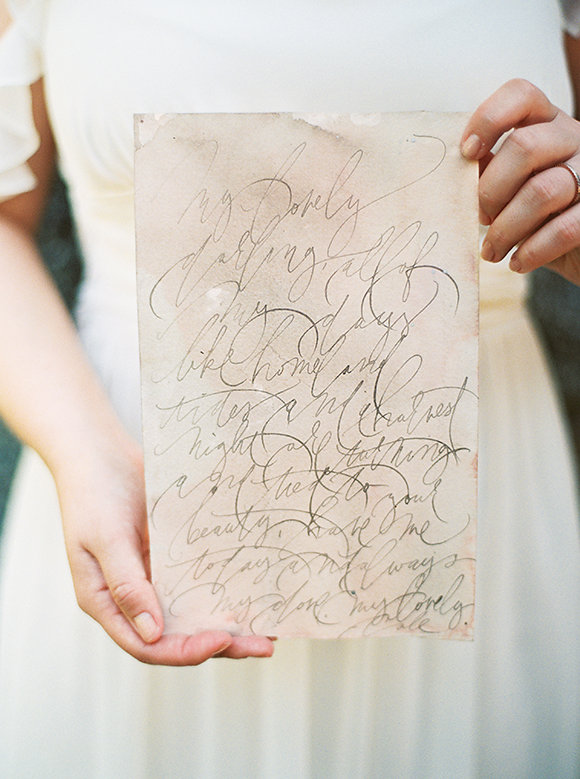 My lovely
darling, all of
my days
like home and
tides and harvest
night are turning
and tied to your
beauty, have me
today and always
my dove. my lovely.